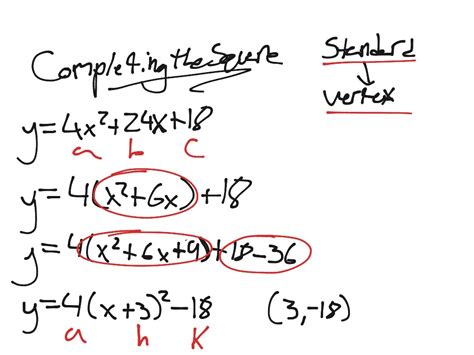 Completing the Square
Standard
↓
vertex
y=4x²+24x+18
a b c
y=4(x²+6x)+18
y=4(x²+6x+9)+18-36
y=4(x+3)²-18 (3,-18)
a h K